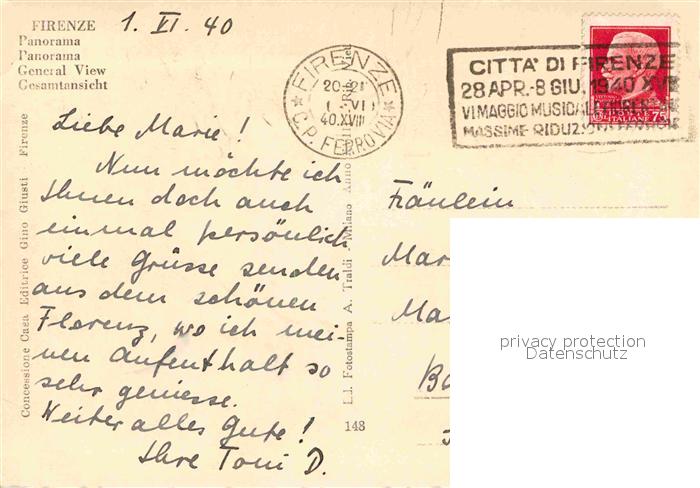 FIRENZE
Panorama
Panorama
General View
Gesamtansicht
1. VI. 40
FIRENZE
20-21
1 VI
40.XVIII
C.P. FERROVIA
CITTÀ DI FIRENZE
28 APR.-8 GIU. 1940 XVIII
VI MAGGIO MUSICALE
MASSIME RIDUZIONI
ITALIANE
Liebe Marie!
Nun möchte ich
Ihnen doch auch
einmal persönlich
viele Grüsse senden
aus dem schönen
Florenz, wo ich mei-
nen Aufenthalt so
sehr geniesse.
Weiter alles Gute!
Ihre Toni D.
Concessione Casa Editrice Gino Giusti - Firenze
L.I. Fotostampa A. Traldi Milano Anno
148
Fräulein
Mar
Ma
Ba
privacy protection
Datenschutz